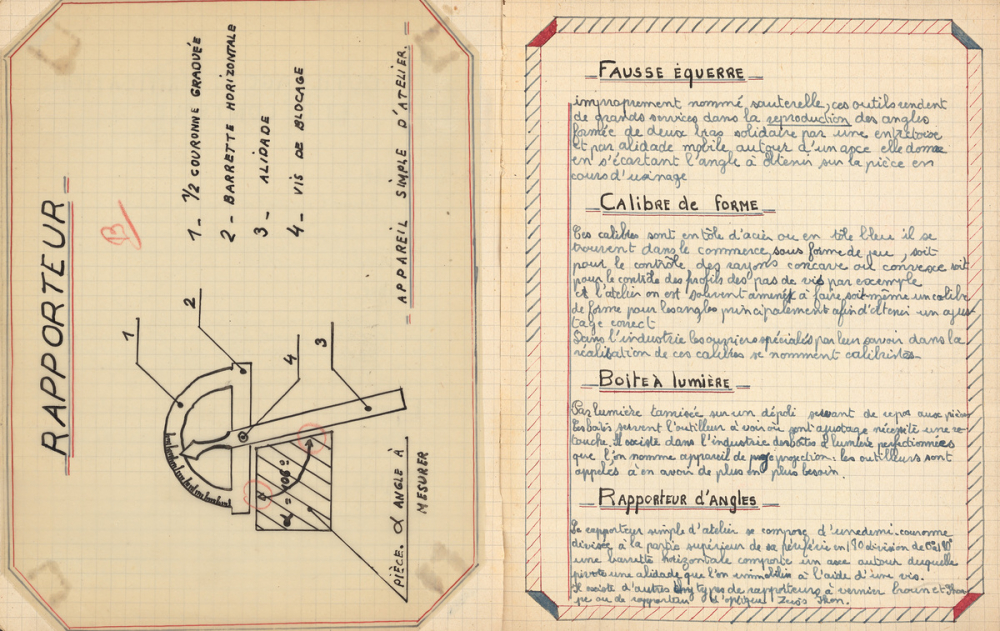 RAPPORTEUR
B
1_ 1/2 COURONNE GRADUÉE
2_ BARRETTE HORIZONTALE
3_ ALIDADE
4_ VIS DE BLOCAGE
APPAREIL SIMPLE D'ATELIER.
1
2
4
3
α = 106°
PIÈCE. α ANGLE À
MESURER
FAUSSE ÉQUERRE
improprement nommé sauterelle, ces outils rendent
de grands services dans la reproduction des angles
formée de deux bras solidaire par une entretoise
et par alidade mobile autour d'un axe elle donne
en s'écartant l'angle à obtenir sur la pièce en
cours d'usinage
CALIBRE de FORME
Ces calibres sont en tôle d'acier ou en tôle bleu il se
trouvent dans le commerce sous forme de jeu, soit
pour le contrôle des rayons concave ou convexe soit
pour le contrôle des profils des pas de vis par exemple
et l'atelier on est souvent amené à faire soit même un calibre
de forme pour les angles principalement afin d'obtenir un ajus-
tage correct
Dans l'industrie les ouvriers spécialisés par leur savoir dans la
réalisation de ces calibres se nomment calibristes.
BOITE À LUMIÈRE
Par lumière tamisée sur un dépoli servant de repos aux pièces
les boites servent l'outilleur à voir où sont ajustage nécessité une re-
touche, il existe dans l'industrie des boites à lumière perfectionnées
que l'on nomme appareil de projection: les outilleurs sont
appelés à en avoir de plus en plus besoin
RAPPORTEUR D'ANGLES
Le rapporteur simple d'atelier se compose d'une demi-couronne
divisée à la partie supérieur de sa périférie en 180 division de 0° à 180°
une barrette horizontale comporte un axe autour duquelle
pivote une alidade que l'on immobilise à l'aide d'une vis.
Il existe d'autres types de rapporteurs à vernier brown et Shar-
pe ou de rapporteur d'optique Zeiss Ikon.